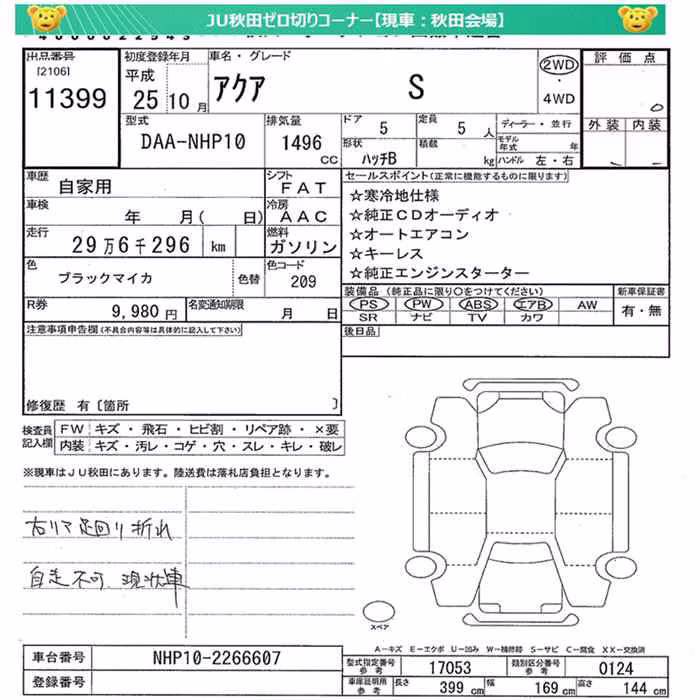 JU秋田ゼロ切りコーナー【現車：秋田会場】
出品番号
[2106]
11399
初度登録年月
平成
25 10 月
車名・グレード
アクア S
2WD
・
4WD
評価点
0
外装 内装
型式
DAA-NHP10
排気量
1496
CC
ドア
5
定員
5 人
ディーラー・並行
モデル
年式 年
形状
ハッチB
積載
kg
ハンドル 左・右
車歴
自家用
シフト
FAT
車検
年 月( 日)
冷房
AAC
走行
29万6千296 km
燃料
ガソリン
色
ブラックマイカ
色替
色コード
209
R券
9,980 円
名変通知期限
月 日
セールスポイント(正常に機能するものに限ります)
☆寒冷地仕様
☆純正CDオーディオ
☆オートエアコン
☆キーレス
☆純正エンジンスターター
装備品(純正品に限り○をつけてください)
PS PW ABS エアB AW
SR ナビ TV カワ
新車保証書
有・無
後日品
注意事項申告欄(不具合内容等は具体的に記入して下さい)
修復歴 有〔箇所 〕
検査員
記入欄
FW キズ・飛石・ヒビ割・リペア跡・×要
内装 キズ・汚レ・コゲ・穴・スレ・キレ・破レ
※現車はJU秋田にあります。陸送費は落札店負担となります。
右リア足回り折れ
自走不可 現状車
スペア
A-キズ E-エクボ U-凹み W-補修跡 S-サビ C-腐食 XX-交換済
車台番号
NHP10-2266607
登録番号
型式指定番号
参考
17053
類別区分番号
参考
0124
車庫証明用
参考
長さ
399 cm
幅
169 cm
高さ
144 cm